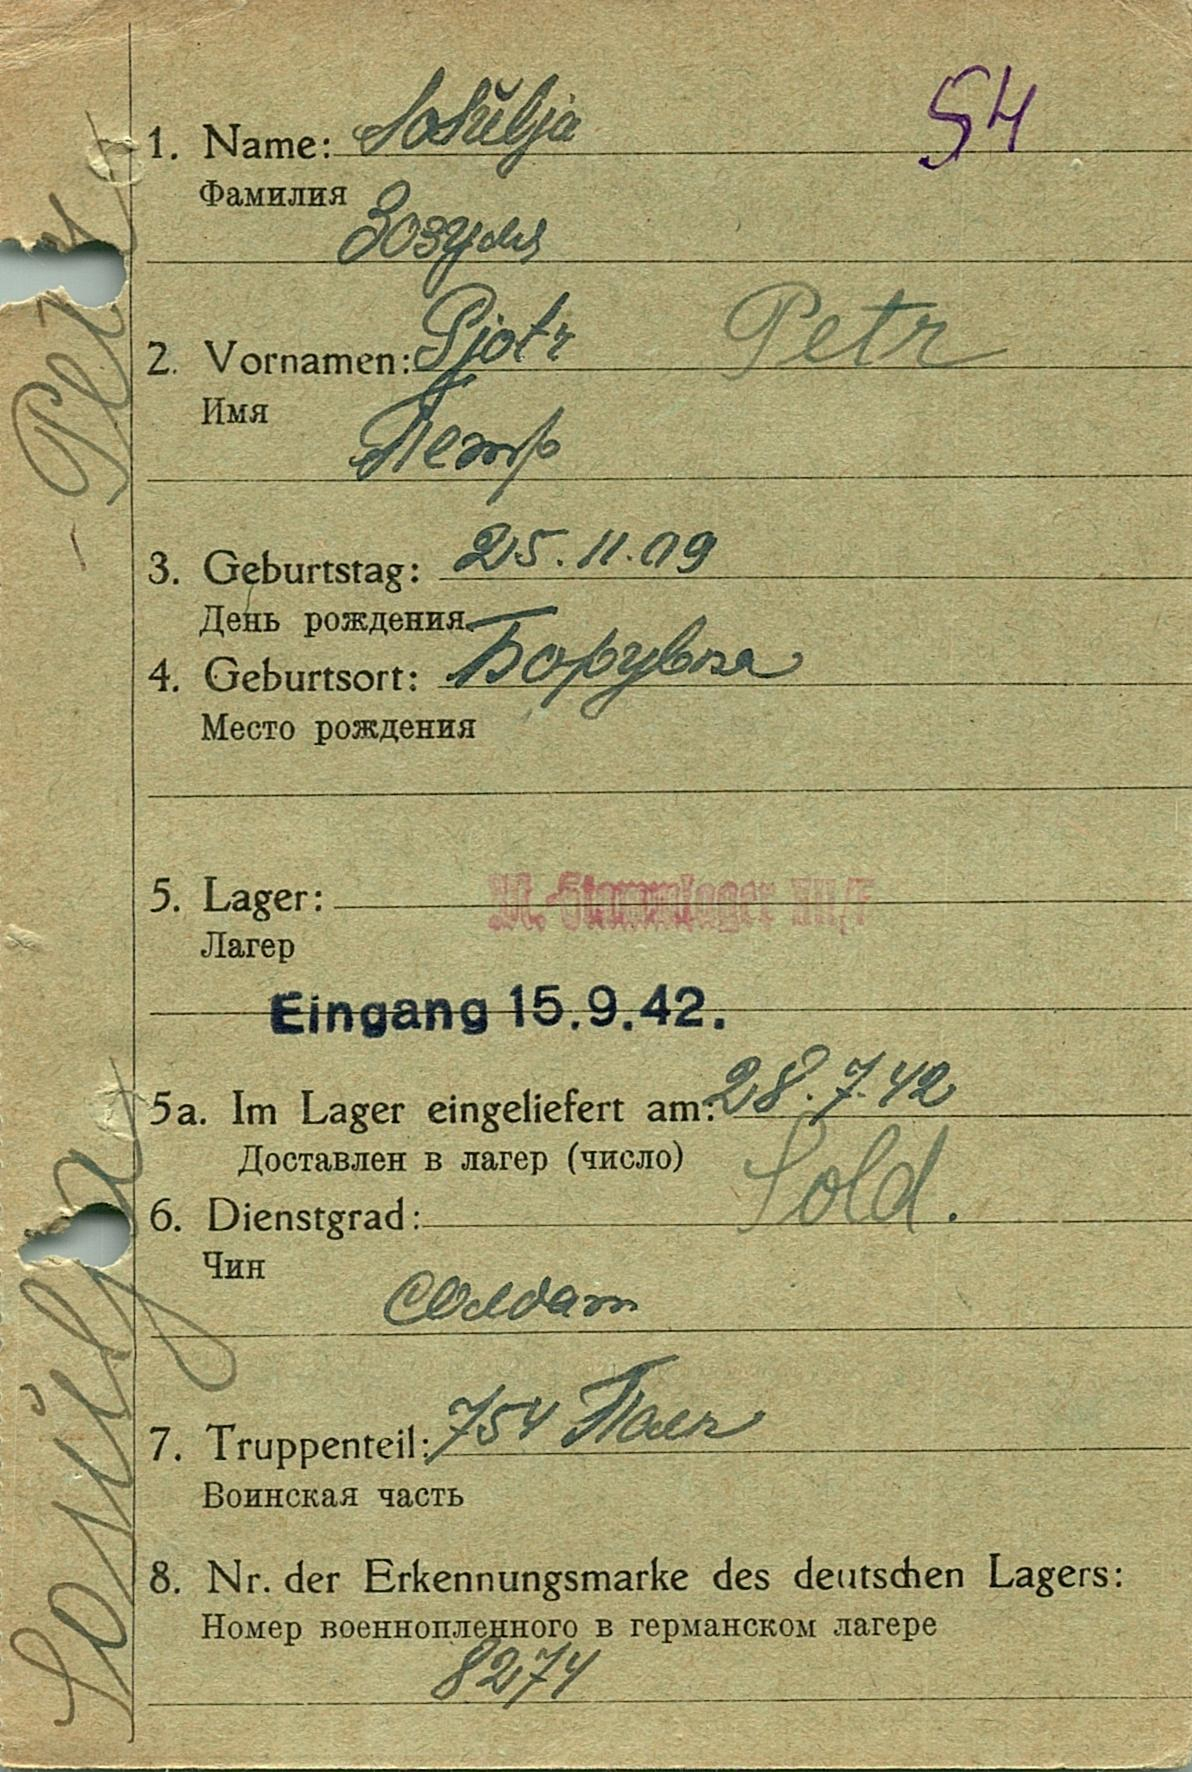 54
1. Name: Sosulja
Фамилия
Зозуля
2. Vornamen: Pjotr Petr
Имя
Петр
3. Geburtstag: 25.11.19
День рождения
4. Geburtsort: Борувка
Место рождения
5. Lager: M.-Stammlager VIII/F
Лагер
Eingang 15.9.42.
5a. Im Lager eingeliefert am: 28.7.42
Доставлен в лагер (число)
6. Dienstgrad: Sold.
Чин
Солдат
7. Truppenteil: 754 Полк
Воинская часть
8. Nr. der Erkennungsmarke des deutschen Lagers:
Номер военнопленного в германском лагере
8274
Sosulja - Petr